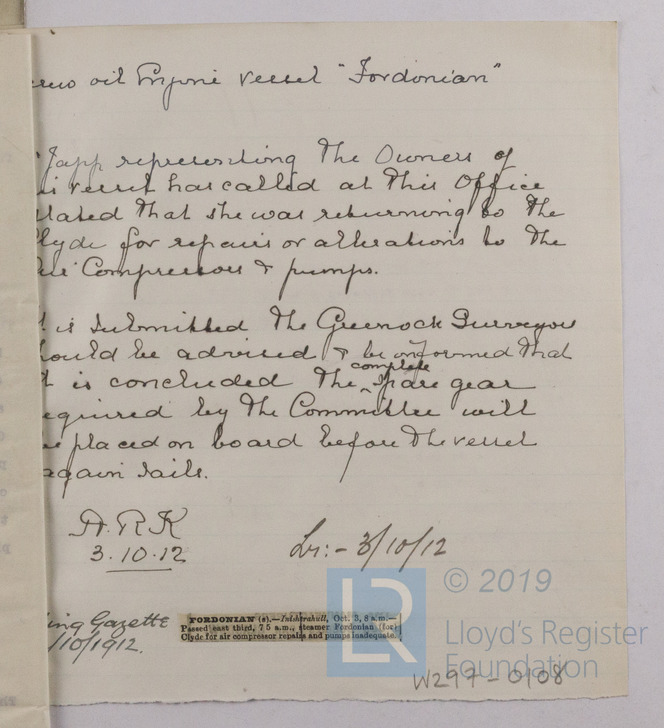 oil Engine vessel "Fordonian"
Japp representing the Owners of
vessel has called at this Office
stated that she was returning to the
Clyde for repairs or alterations to the
Air Compressors & pumps.
is submitted the Greenock Surveyors
should be advised & be informed that
it is concluded the complete spare gear
required by the Committee will
be placed on board before the vessel
again sails.
3.10.12
Lr:- 3/10/12
Gazette
/10/1912.
FORDONIAN (s).—Inishtrahull, Oct. 3, 8 a.m.—
Passed east third, 7 5 a.m., steamer Fordonian (for)
Clyde for air compressor repairs and pumps inadequate.
LR
© 2019
Lloyd's Register
Foundation
W297-0108